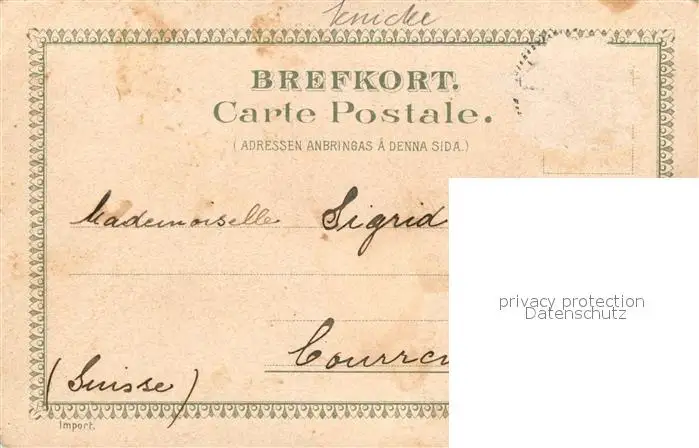 Knicke
BREFKORT.
Carte Postale.
(ADRESSEN ANBRINGAS Å DENNA SIDA.)
Mademoiselle Sigrid
privacy protection
Datenschutz
(Suisse)
Import.